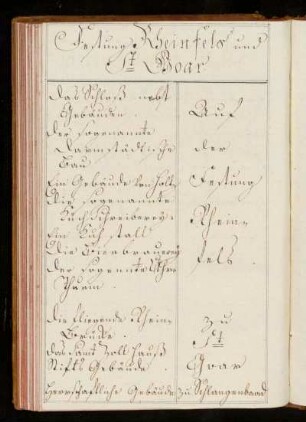 Festung Rheinfels und
St Goar
das Schloß nebst
Gebäuden.
Auf
der sogenannte
darmstädtische
Bau
der
Ein Gebäude von Holtz
Festung
die sogenannte
Küchschreiberey
Rhein-
Ein Küh stall
die Bierbrauerey
fels.
der sogenente Uhr
Thurm.
die fliegende Rhein-
Brücke
zu
St
das Samt Zoll Hauß
Stifts Gebäude
Goar
Herrschaftliche Gebäude zu Schlangenbaad